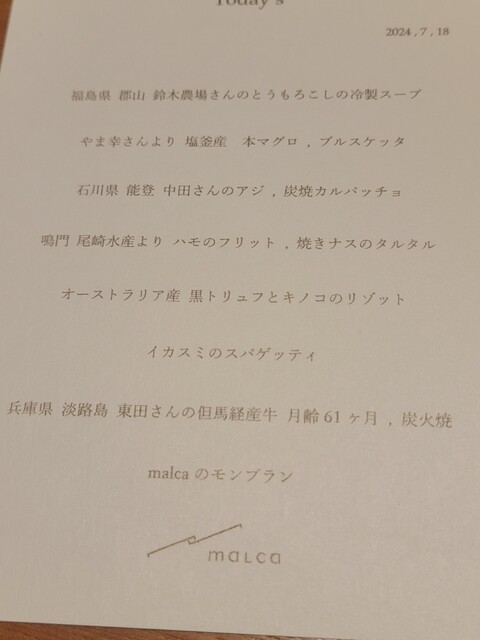 Today's
2024 , 7 , 18
福島県 郡山 鈴木農場さんのとうもろこしの冷製スープ
やま幸さんより 塩釜産 本マグロ , ブルスケッタ
石川県 能登 中田さんのアジ , 炭焼カルパッチョ
鳴門 尾崎水産より ハモのフリット , 焼きナスのタルタル
オーストラリア産 黒トリュフとキノコのリゾット
イカスミのスパゲッティ
兵庫県 淡路島 東田さんの但馬経産牛 月齢 61 ヶ月 , 炭火焼
malca のモンブラン
malca